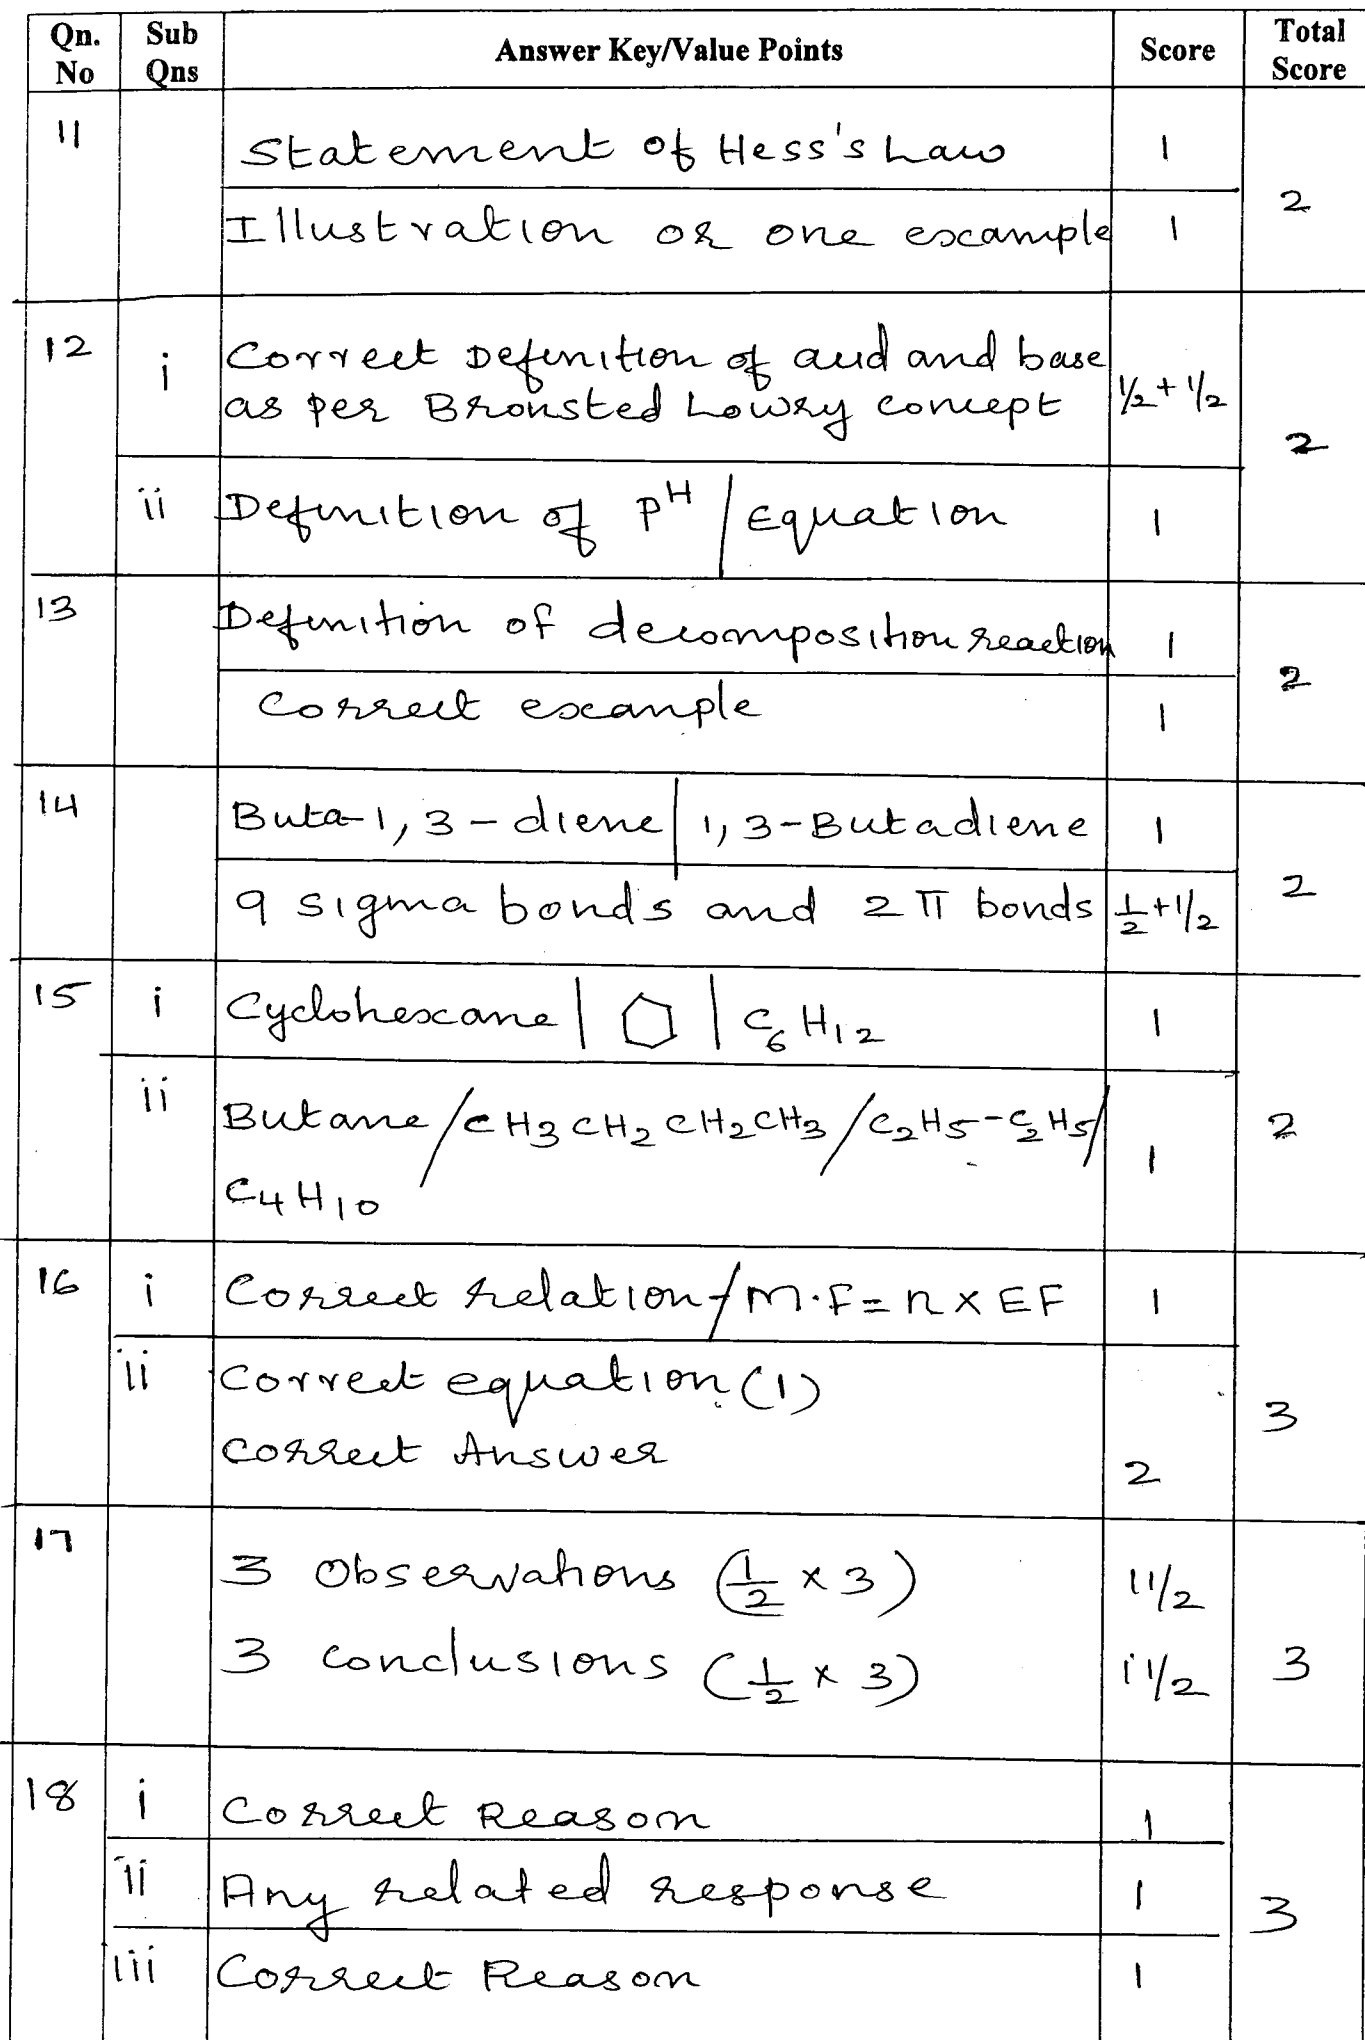 Qn. No Sub Qns Answer Key/Value Points Score Total Score
11 Statement of Hess's Law 1
Illustration or one example 1 2
12 i Correct Definition of acid and base
as per Bronsted Lowry concept 1/2 + 1/2 2
ii Definition of pH / Equation 1
13 Definition of decomposition reaction 1
Correct example 1 2
14 Buta-1,3-diene / 1,3-Butadiene 1
9 sigma bonds and 2 π bonds 1/2 + 1/2 2
15 i Cyclohexane | | C6H12 1
ii Butane / CH3CH2CH2CH3 / C2H5-C2H5 / 1 2
C4H10
16 i Correct relation / M.F = n x EF 1
ii Correct equation (1) 3
Correct Answer 2
17 3 Observations (1/2 x 3) 1 1/2
3 conclusions (1/2 x 3) 1 1/2 3
18 i Correct Reason 1
ii Any related response 1 3
iii Correct Reason 1